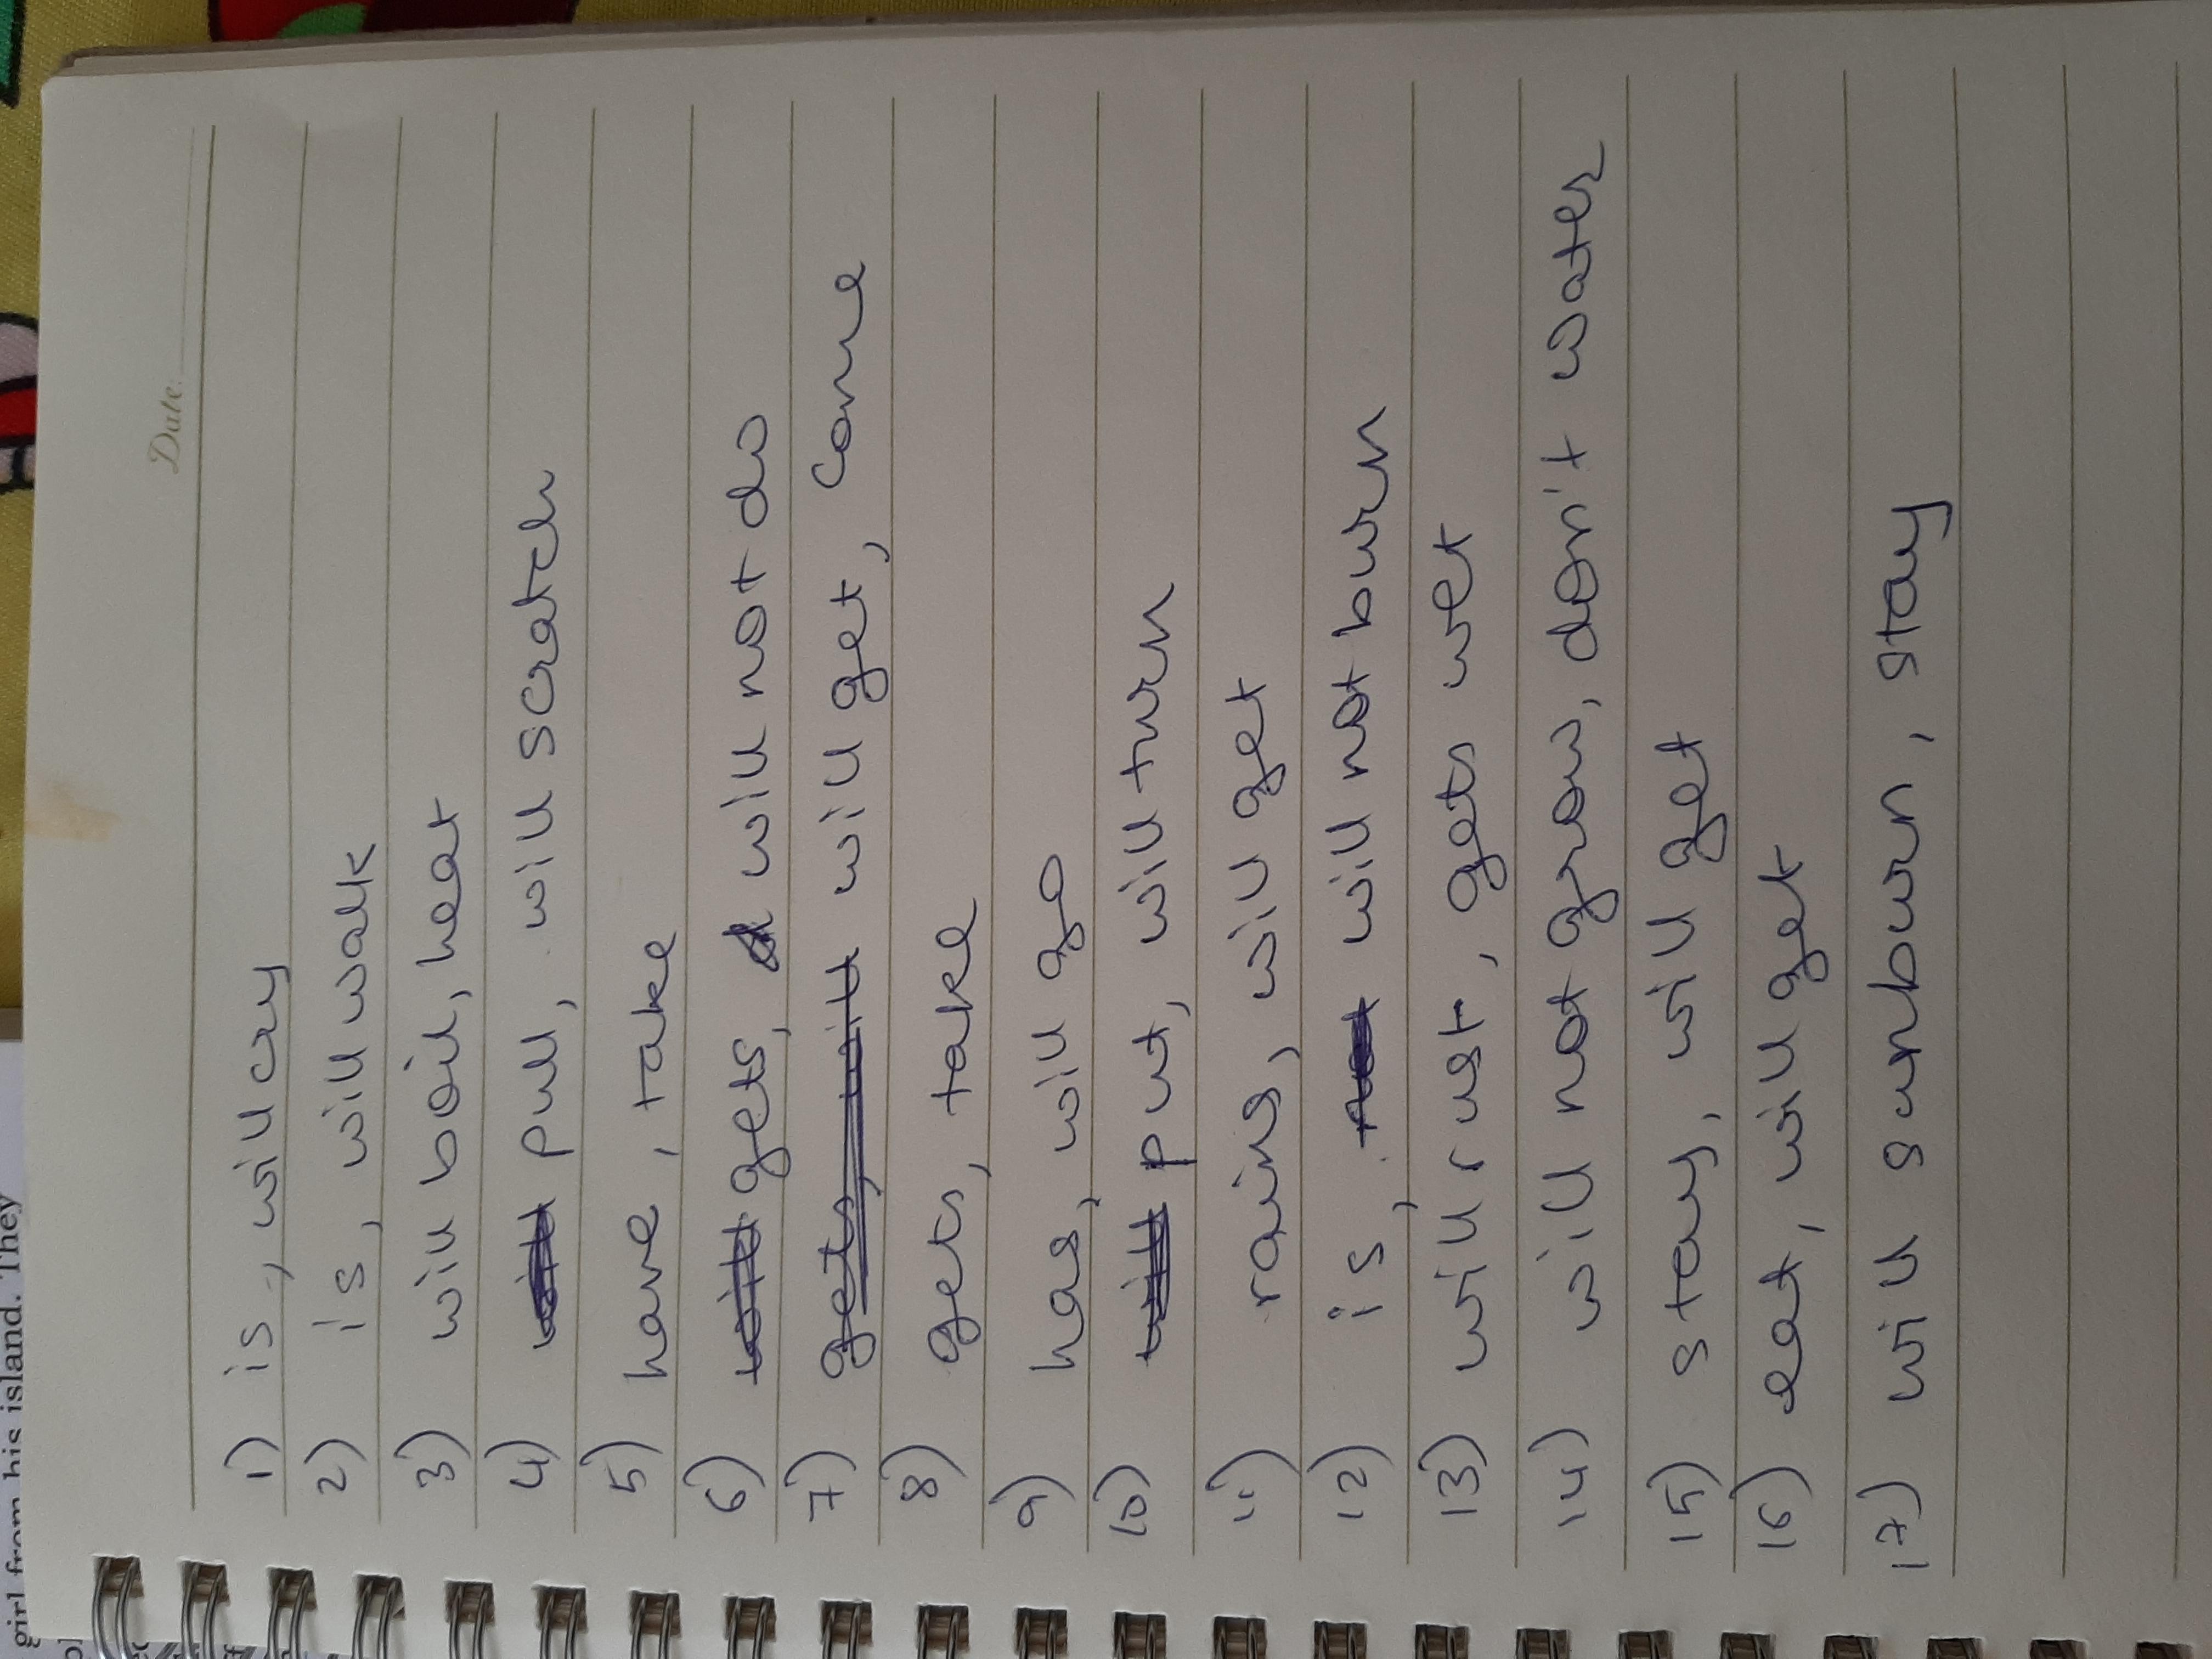 Date.
1) is, will cry
2) is, will walk
3) will boil, heat
4) pull, will scratch
5) have, take
6) gets, will not do
7) will get, come
8) gets, take
9) has, will go
10) put, will turn
11) rains, will get
12) is, will not burn
13) will rust, gets wet
14) will not grow, don't water
15) stay, will get
16) eat, will get
17) will sunburn, stay
girl from his island. They